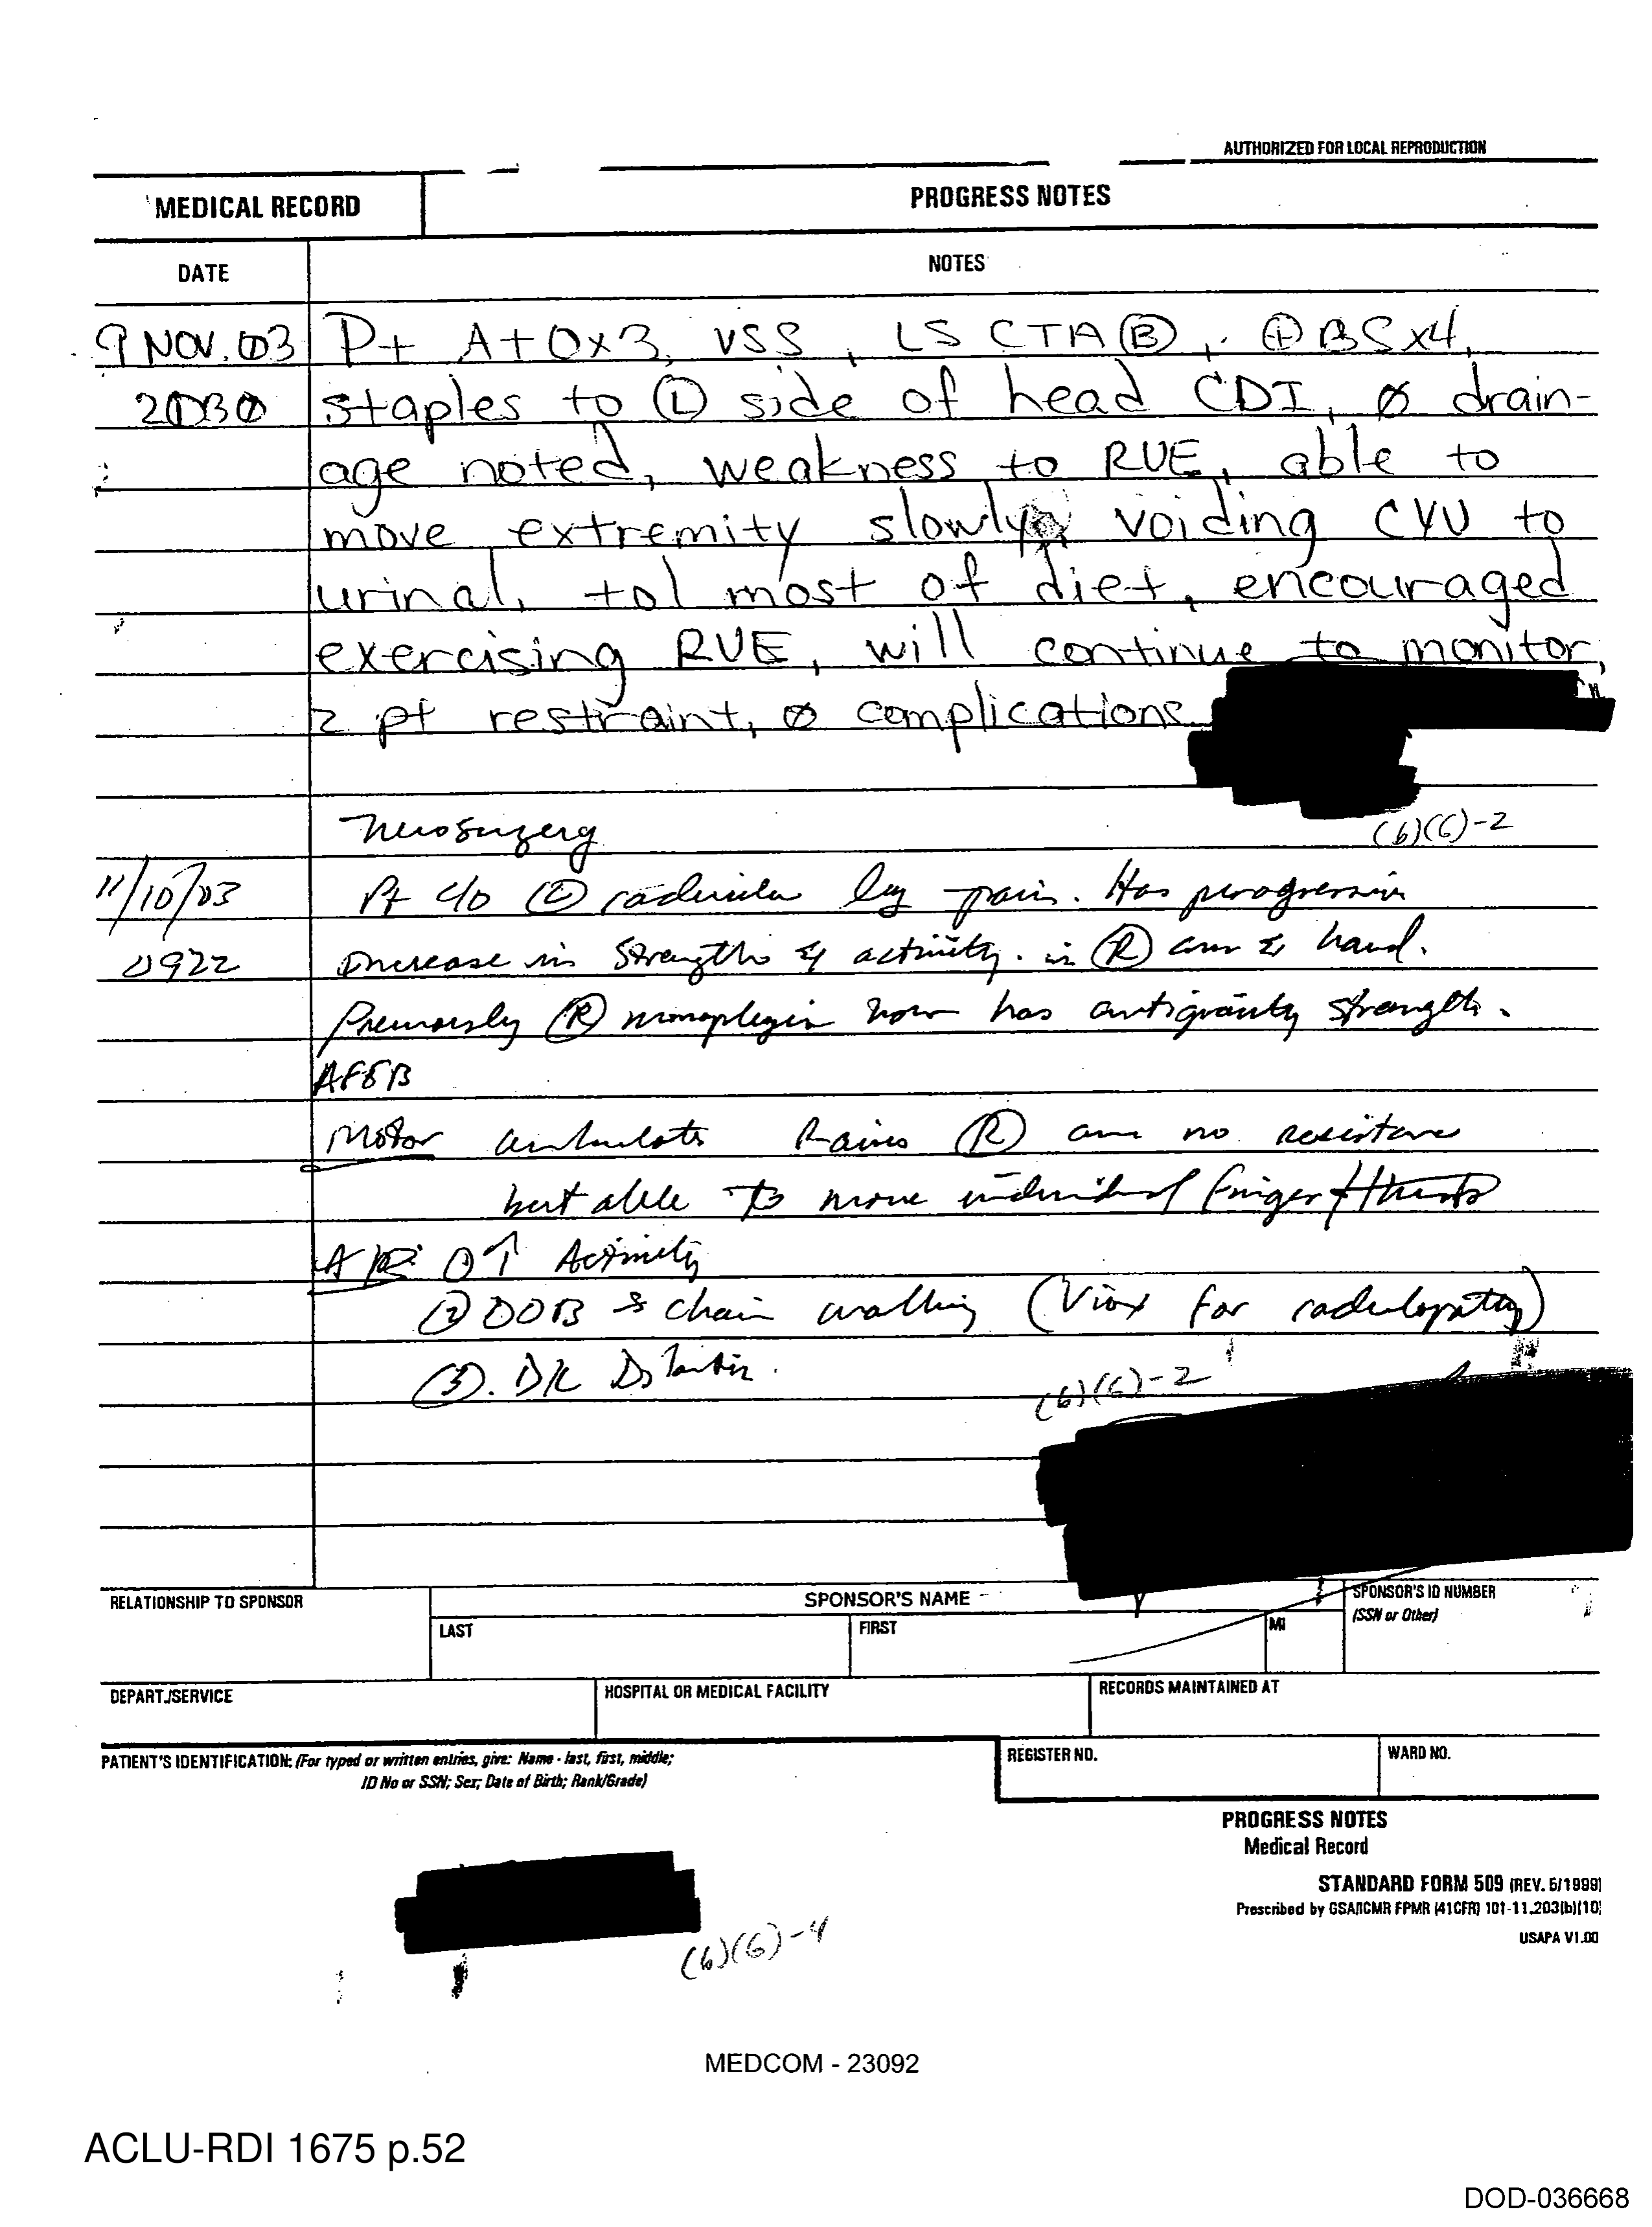 AUTHORIZED FOR LOCAL REPRODUCTION
MEDICAL RECORD
PROGRESS NOTES
DATE
NOTES
9 NOV. 03 Pt A+Ox3, VSS, LS CTA Ⓑ, ⊕ BSx4,
2030 staples to Ⓛ side of head CDI, ø drain-
age noted, weakness to RUE, able to
move extremity slowly, voiding CYU to
urinal, tol most of diet, encouraged
exercising RUE, will continue to monitor,
2 pt restraint, ø complications
(b)(6)-2
Neurosurgery
11/10/03 Pt c/o radicular leg pain. Has progressive
0922 increase in strength & activity in Ⓡ arm & hand.
Previously Ⓡ monoplegia now has antigravity strength.
AFEB
Motor ambulates Raises Ⓡ arm no resistance
but able to move individual finger + thumb
① ↑ Activity
② OOB chair walking (Viox for radiculopathy)
③. D/C Dilantin.
(b)(6)-2
RELATIONSHIP TO SPONSOR
SPONSOR'S NAME
LAST
FIRST
MI
SPONSOR'S ID NUMBER
(SSN or Other)
DEPART./SERVICE
HOSPITAL OR MEDICAL FACILITY
RECORDS MAINTAINED AT
PATIENT'S IDENTIFICATION: (For typed or written entries, give: Name - last, first, middle;
ID No or SSN; Sex; Date of Birth; Rank/Grade)
REGISTER NO.
WARD NO.
PROGRESS NOTES
Medical Record
STANDARD FORM 509 (REV. 5/1999)
Prescribed by GSA/ICMR FPMR (41CFR) 101-11.203(b)(10)
USAPA V1.00
(b)(6)-4
MEDCOM - 23092
ACLU-RDI 1675 p.52
DOD-036668